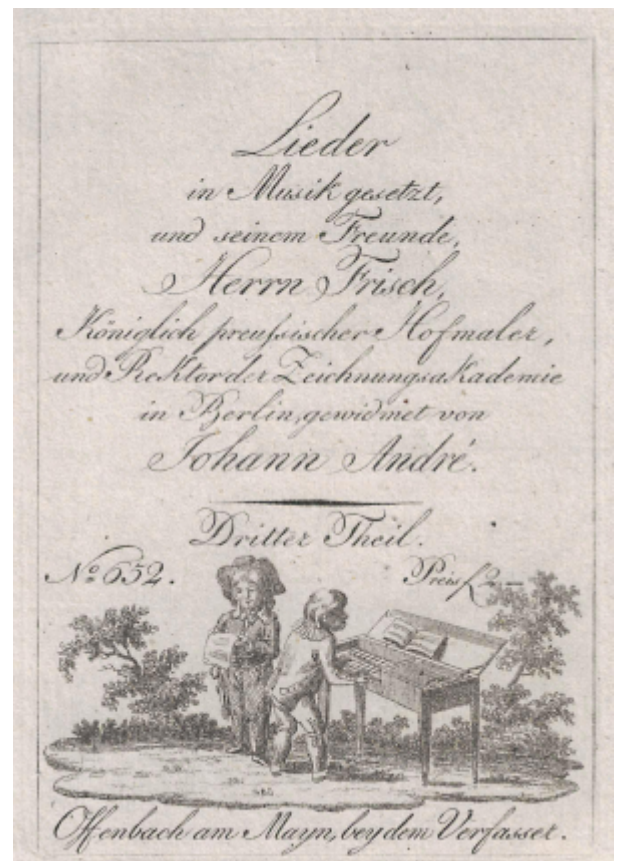 Lieder
in Musik gesetzt,
und seinem Freunde,
Herrn Frisch,
Königlich preußischer Hofmaler,
und Rektor der Zeichnungsakademie
in Berlin, gewidmet von
Johann André.
Dritter Theil.
No. 652. Preis f2 —
Offenbach am Mayn, bey dem Verfasser.